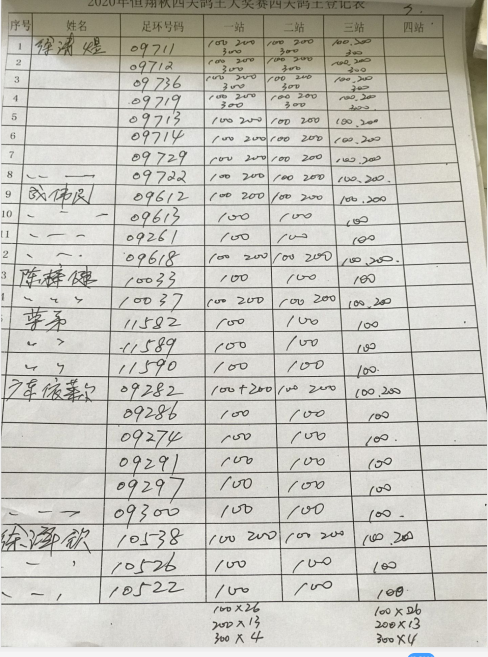 2020年恒翔秋四关鸽王大奖赛四关鸽王登记表
序号 姓名 足环号码 一站 二站 三站 四站
1 徐清煜 09711 100 200 300 100 200 300 100.200 300
2 09712 100 200 300 100 200 300 100.200 300
3 09736 100 200 300 100 200 300 100.200 300
4 09719 100 200 300 100 200 300 100.200 300.
5 09713 100 200 100 200 100.200
6 09714 100 200 100 200 100.200
7 09729 100 200 100 200 100.200
8 09722 100 200 100 200 100.200.
9 成伟民 09612 100 200 100 200 100.200
10 09613 100 100 100
11 09261 100 100 100
2 09618 100 200 100 200 100.200.
3 陈梓健 10033 100 100 100
10037 100 200 100 200 100.200
11582 100 100 100
11589 100 100 100
11590 100 100 100.
广东依莱尔 09282 100+200 100 200 100.200
09286 100 100 100
09274 100 100 100.
09291 100 100 100
09297 100 100 100
09300 100 100 100.
徐泽钦 10538 100 200 100 200 100.200
10526 100 100 100
10522 100 100 100
100×26 100×26
200×13 200×13
300×4 300×4